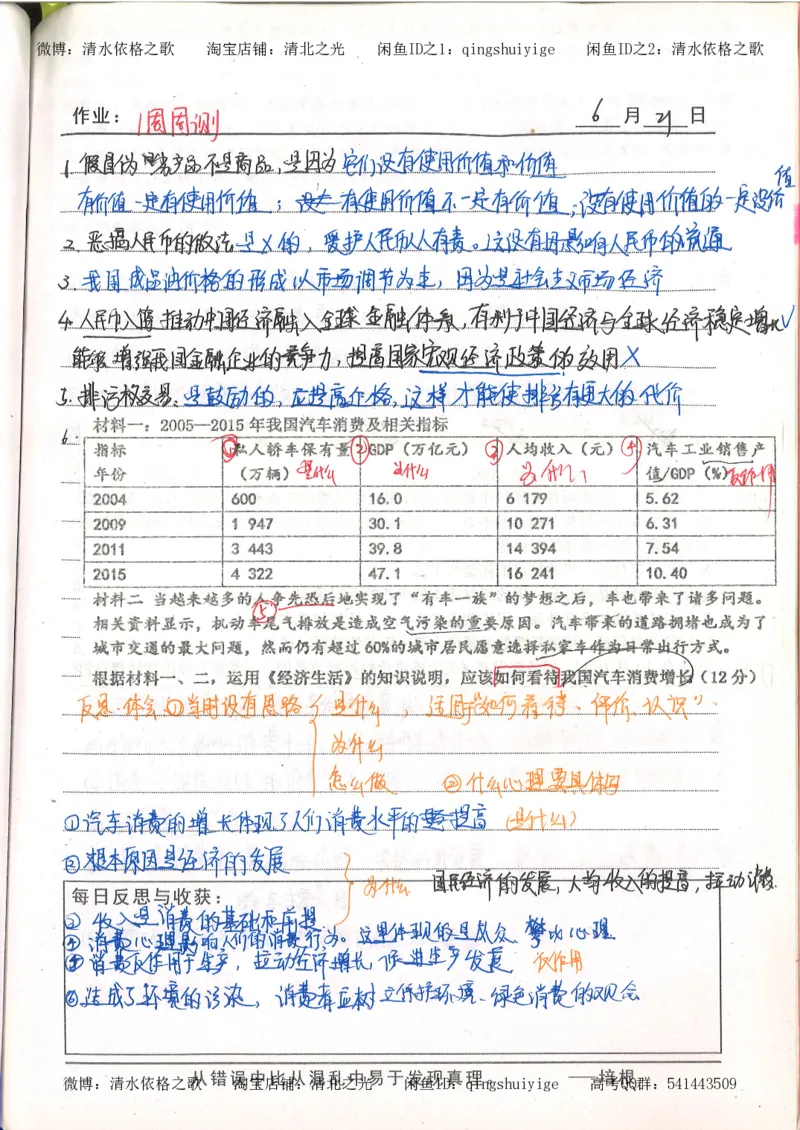 微博：清水依格之歌 淘宝店铺：清北之光 闲鱼ID之1：qingshuiyige 闲鱼ID之2：清水依格之歌
作业： 周周测 6 月 21 日
1.假冒伪劣产品不是商品,是因为它们没有使用价值和价值
有价值一定有使用价值；有使用价值不一定有价值；没有使用价值的一定没价值
2.恶搞人民币的做法是X的，爱护人民币人人有责。这没有因影响人民币的流通
3.我国成品油价格的形成以市场调节为主，因为是社会主义市场经济
4.人民币入篮推动中国经济融入全球金融体系,有利于中国经济与全球经济稳定增长√
能够增强我国金融企业的竞争力,提高国家宏观经济政策的效用X
5.排污权交易：是鼓励的，应提高价格,这样才能使排污有更大的代价
6.
材料一：2005—2015年我国汽车消费及相关指标
指标 ①私人轿车保有量 ②GDP（万亿元） ③人均收入（元） ④汽车工业销售产
年份 （万辆）是什么 为什么 为什么 值/GDP（%）反作用
2004 600 16.0 6 179 5.62
2009 1 947 30.1 10 271 6.31
2011 3 443 39.8 14 394 7.54
2015 4 322 47.1 16 241 10.40
材料二 当越来越多的人争先恐后地实现了“有车一族”的梦想之后，车也带来了诸多问题。
⑤
相关资料显示，机动车尾气排放是造成空气污染的重要原因。汽车带来的道路拥堵也成为了
城市交通的最大问题，然而仍有超过60%的城市居民愿意选择私家车作为日常出行方式。
根据材料一、二，运用《经济生活》的知识说明，应该如何看待我国汽车消费增长（12分）
反思·体会：①当时没有思路 是什么，注同于“如何看待、评价、认识”、
为什么
怎么做 ②什么心理要具体写
①汽车消费的增长体现了人们消费水平的提高（是什么）
②根本原因是经济的发展
为什么 国民经济的发展,人均收入的提高,拉动消费.
每日反思与收获：
③收入是消费的基础和前提
④消费心理影响人们的消费行为。这里体现的是从众、攀比心理
⑤消费反作用于生产，拉动经济增长,促进生产发展 反作用
⑥造成了环境的污染，消费者应树立保护环境、绿色消费的观念
从错误中比从混乱中易于发现真理。 ——培根
微博：清水依格之歌 淘宝店铺：清北之光 闲鱼ID：qingshuiyige 高考QQ群：541443509